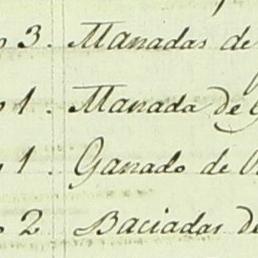 3. Manadas de
1. Manada de
1. Ganado de
2. Baciadas de